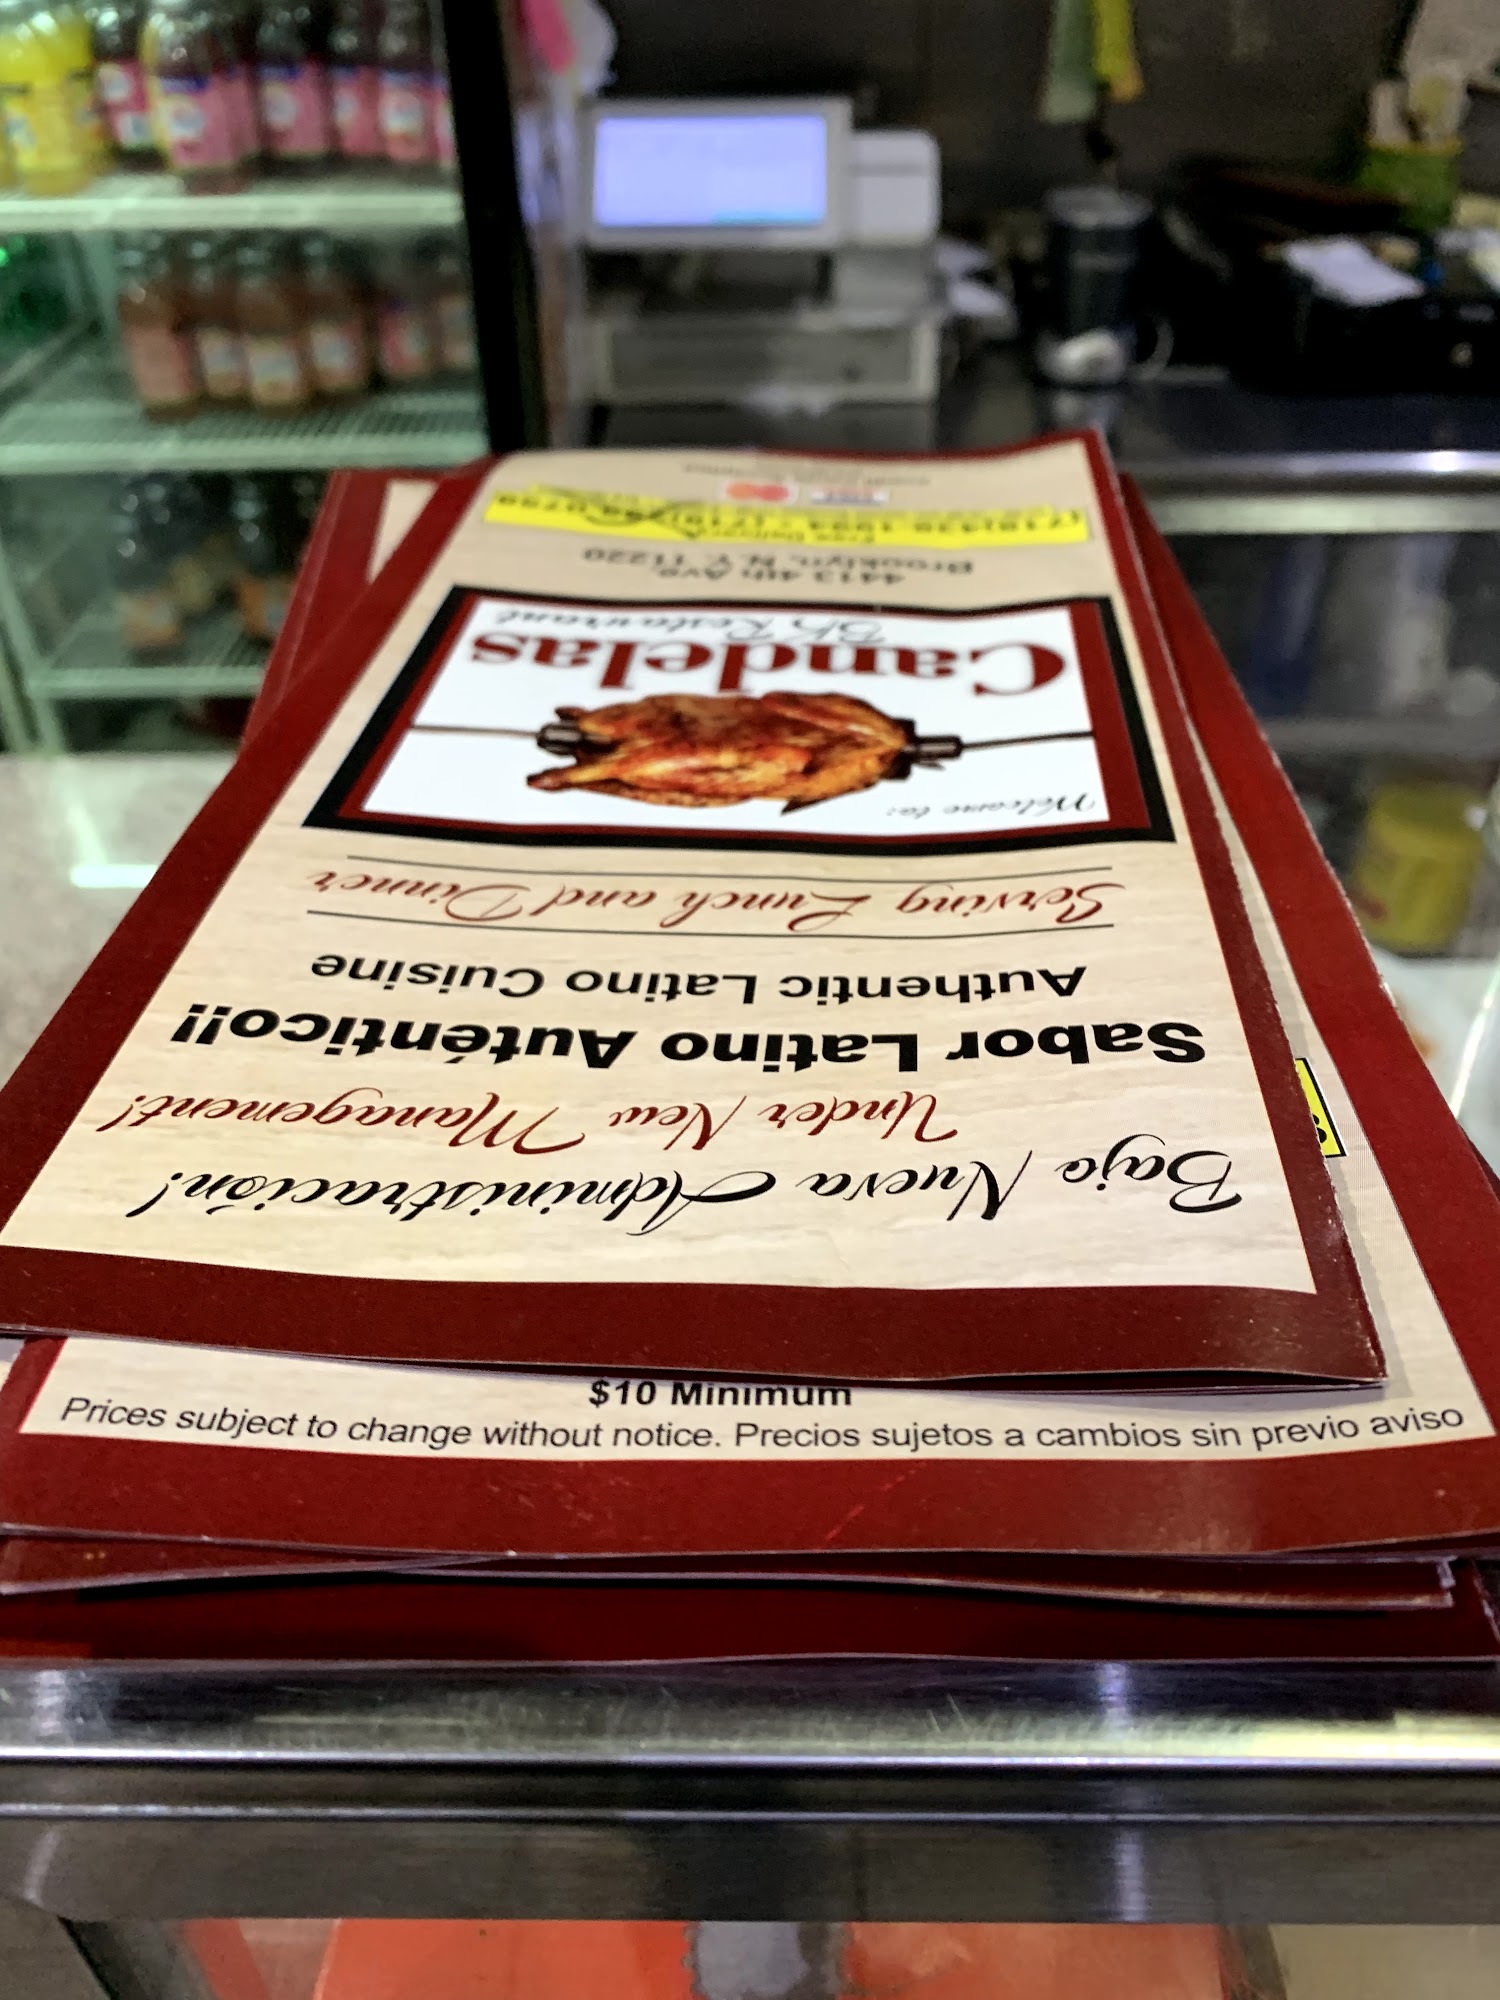 Brooklyn, N.Y. 11220
4413 4th Ave.
Free Delivery
Candelas
BK Restaurant
Welcome to:
Serving Lunch and Dinner
Authentic Latino Cuisine
Sabor Latino Auténtico!!
Under New Management!
Bajo Nueva Administración!
$10 Minimum
Prices subject to change without notice. Precios sujetos a cambios sin previo aviso